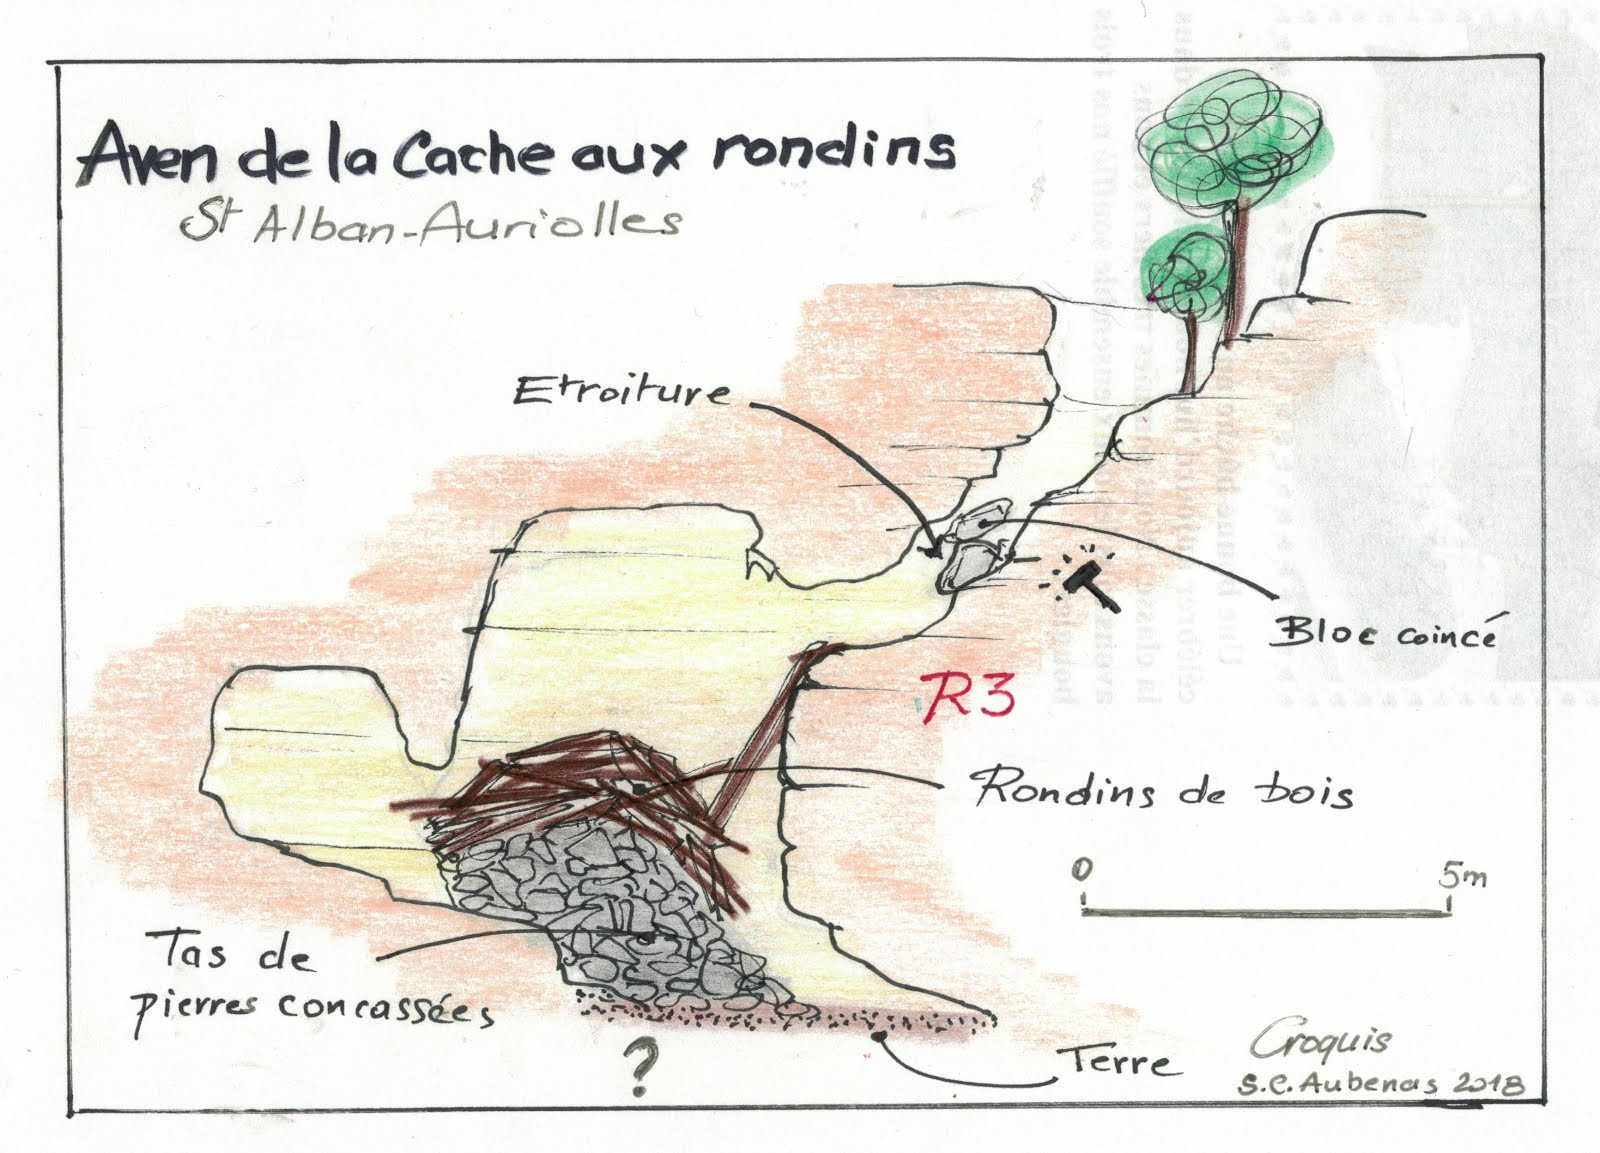 Aven de la Cache aux rondins
St Alban-Auriolles
Etroiture
Bloc coincé
R3
Rondins de bois
0 5m
Tas de
pierres concassées
?
Terre
Croquis
S.C. Aubenas 2018